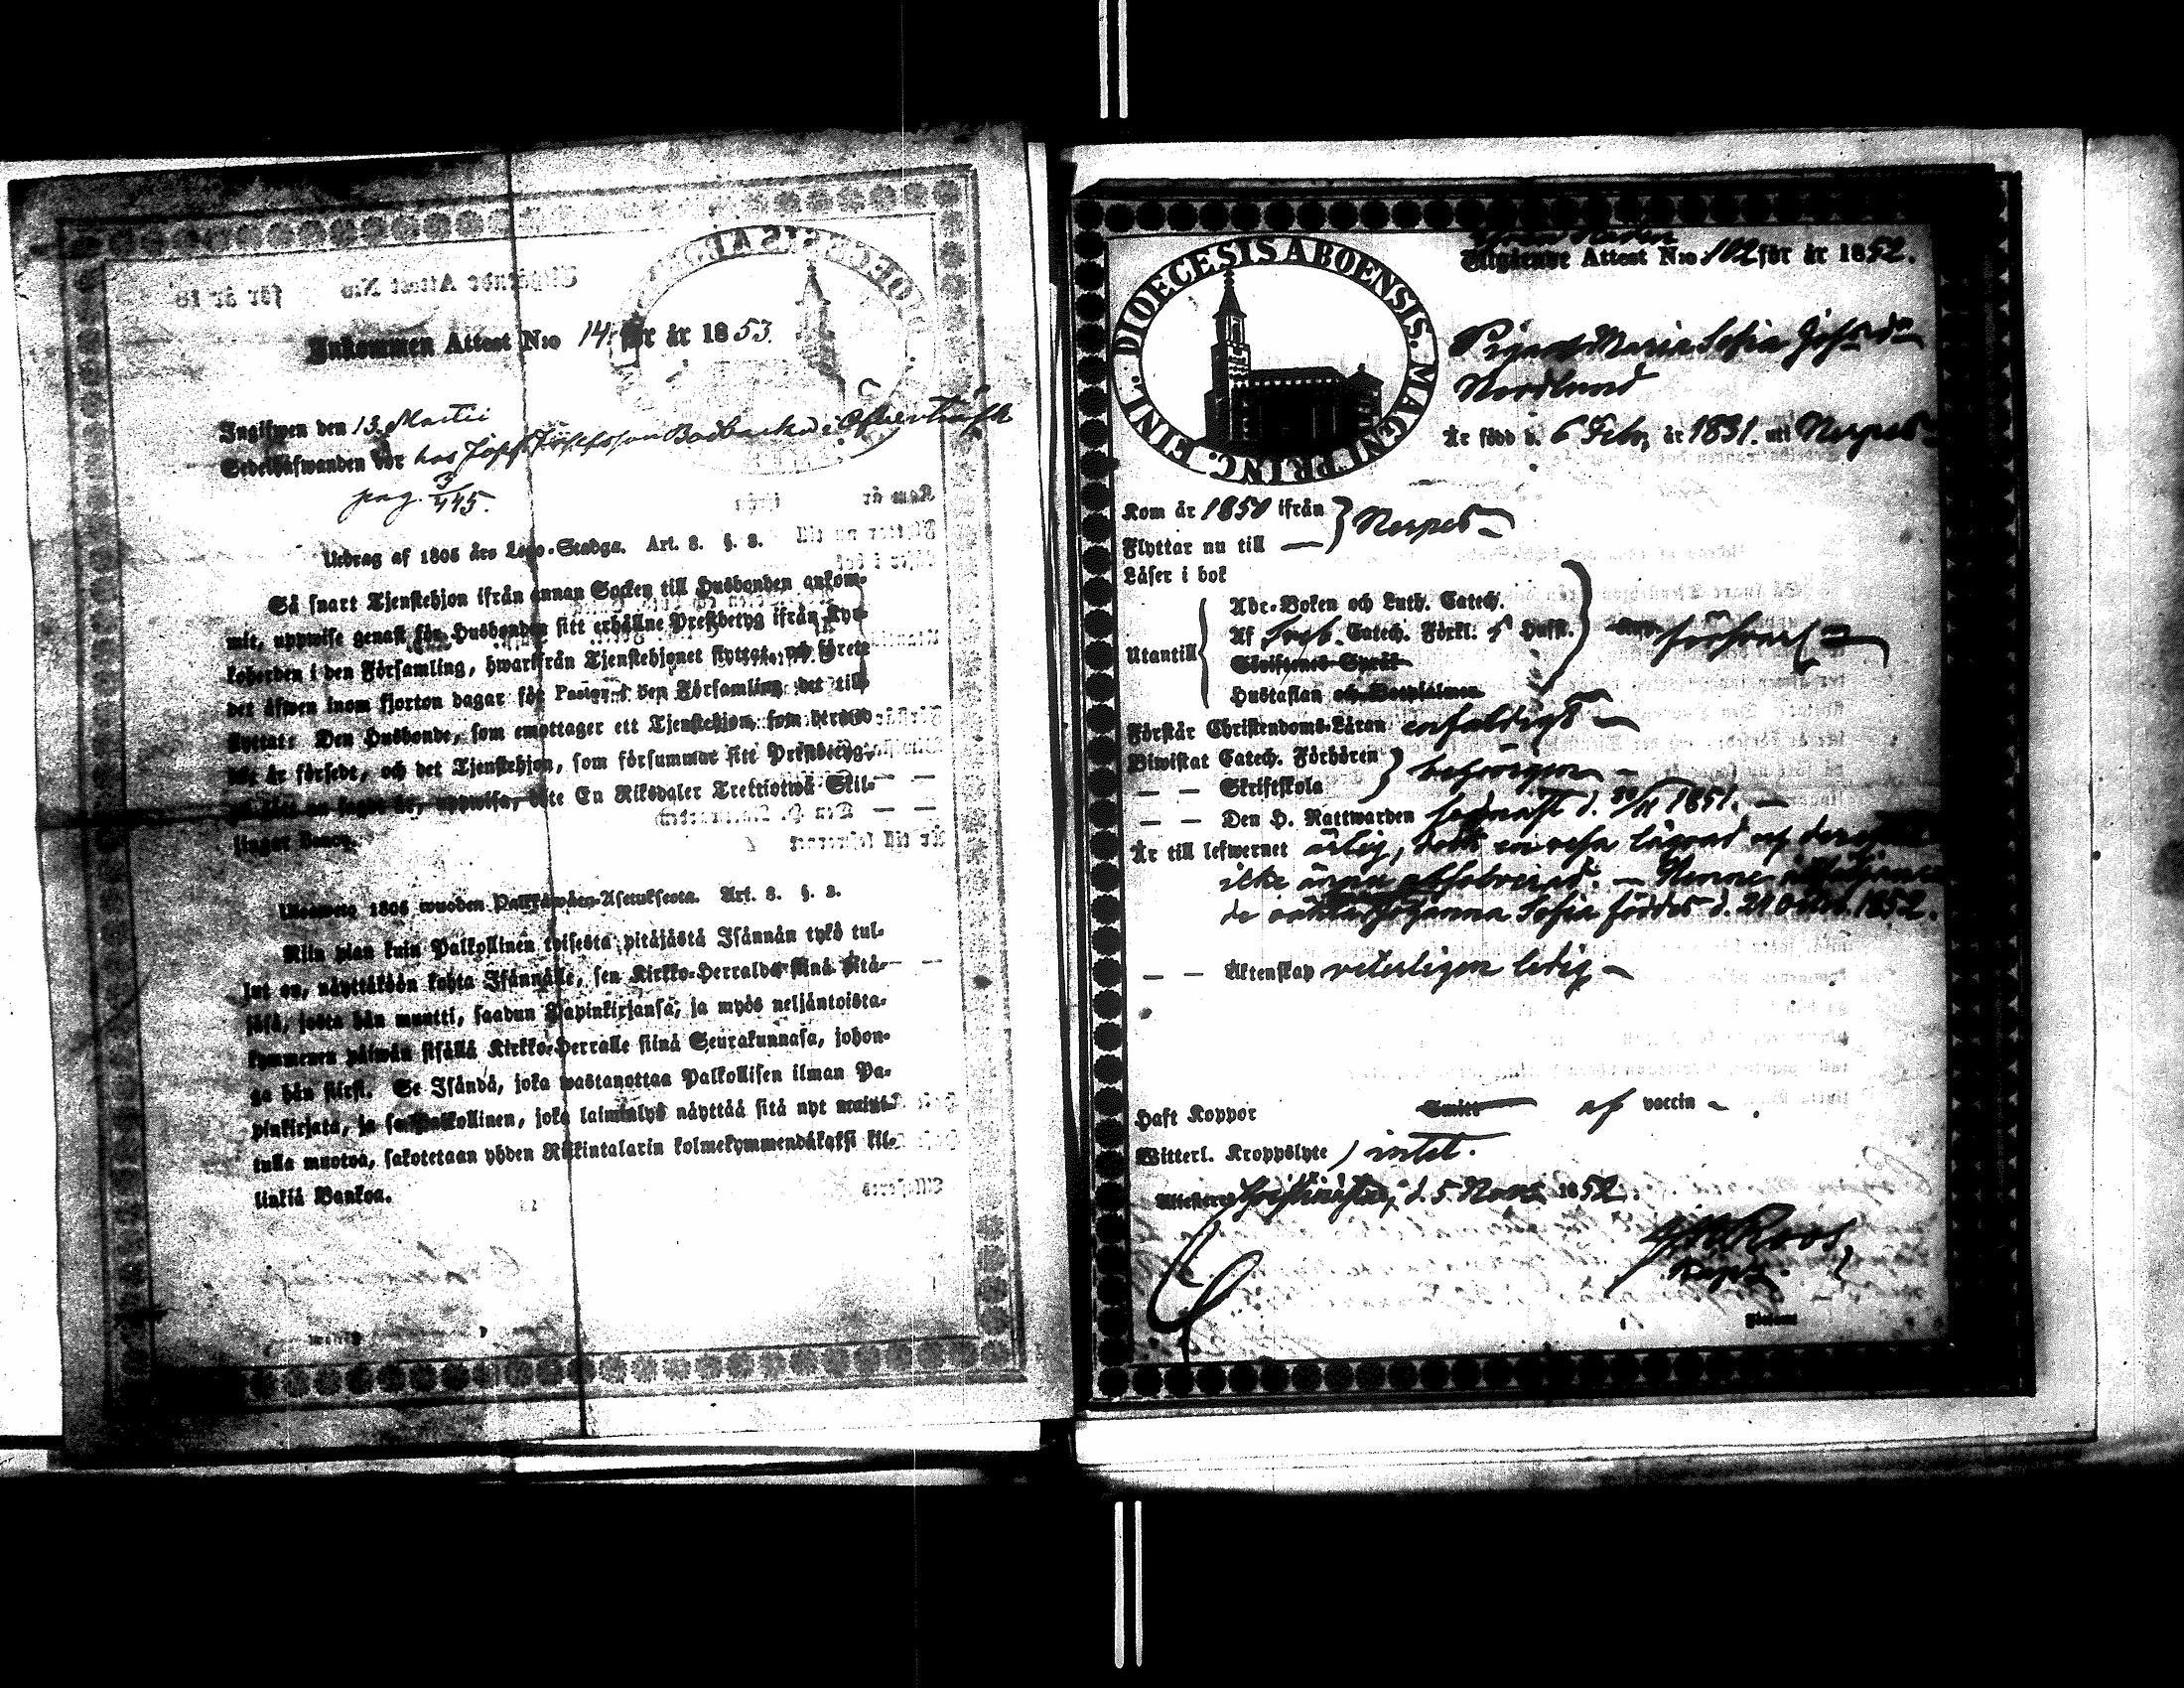 Inkommen Attest N:o 14. för år 1853.
Ingifwen den 13 Martii
Sedelhafwanden bor hos Josef Josefsson Bodbacka i Öfverträsk
pag. 3/445.
Utdrag af 1805 års Lego-Stadga. Art. 8. §. 2.
Så snart Tjenstehjon ifrån annan Socken till Husbonden ankom-
mit, uppwise genast för Husbonden sitt erhållne Prestbetyg ifrån Kyr-
koherden i den Församling, hwarifrån Tjenstehjonet flyttat, och förete
det äfwen inom fjorton dagar för Pastor i den Församling det till-
flyttat. Den Husbonde, som emottager ett Tjenstehjon, som dermed
är försedt, och det Tjenstehjon, som försummar sitt Prestbetyg,
uppwisa, böte En Riksdaler Tretiotwå Skil-
lingar Banco.
Ulosweto 1805 wuoden Palkkawäen-Asetuksesta. Art. 8. §. 2.
Niin pian kuin Palkollinen toisesta pitäjästä Isännän tykö tul-
lut on, näyttäköön kohta Isännälle, sen Kirkko-Herralda siinä pitä-
jäsä, josta hän muutti, saadun Papinkirjansa, ja myös neljäntoista-
kymmenen päiwän sisällä Kirkko-Herralle siinä Seurakunnasa, johon-
ga hän siirsi. Se Isändä, joka wastanottaa Palkollisen ilman Pa-
pinkirjata, ja se Palkollinen, joka laiminlyö näyttää sitä nyt mainit-
tulla muotoa, sakotetaan yhden Riikintalarin kolmekymmendäkaksi kil-
linkiä Bankoa.
DIOECESIS ABOENSIS. MAGNI PRINC. FINL.
Utgående Attest N:o 102 för år 1852.
Pigan Maria Sofia Johsdr
Nordlund
Är född d. 6 Febr. år 1831. uti Nerpes
Kom år 1850 ifrån } Nerpes
Flyttar nu till
Läser i bok
Utantill
Abc-Boken och Luth. Catech.
Af Catech. Förkl. 5 Hufst. försvarl.
Gåsfernes Språk
Hustaflan och Botpsalmen
Förstår Christendoms-Läran enfaldigt
Biwistat Catech. Förhören } behörigen
— — Skriftskola
— — Den H. Nattwarden sednast d. 30/11 1851.
Är till lefwernet ärlig, dock en resa lägrad och derföre
icke ännu absolverad. — Hennes
de oäkta Johanna Sofia föddes d. 21 1852.
— — Äktenskap veterligen ledig
Haft Koppor Smitt af vaccin
Witterl. Kroppslyte / intet.
Attesterar Christinestad, d. 5 Nov. 1852.
Roos